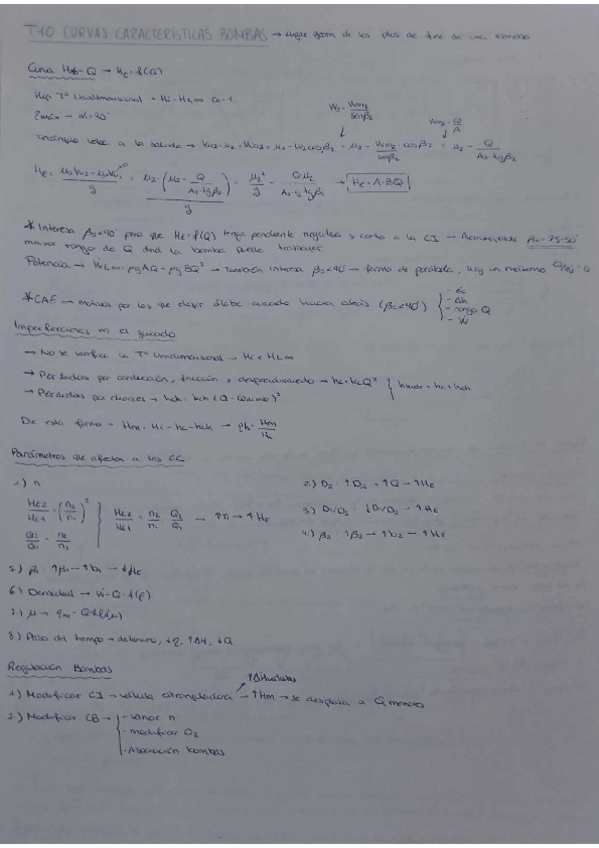 T.10 CURVAS CARACTERÍSTICAS BOMBAS → lugar geom de los ptos de func de una
Curva H-Q → HE = f(Q)
Hip Tª Unidimensional →
α = 90°
Triángulo veloc a la salida → = u2 - W2 cosβ2 = u2 - Wm2/senβ2 · cosβ2 = u2 - Q/A2·tgβ2
W2 = Wm2/senβ2
Wm2 = Q/A
HE = = u2·(u2 - Q/A2·tgβ2)/g = u2²/g - Q u2/A2·g·tgβ2 → HE = A-BQ
* Interesa β2<90° para que HE = f(Q) tenga pendiente negativa y corte a la CI →
mayor rango de Q dnd la bomba puede trabajar
Potencia → = ρgAQ - ρgBQ² → también interesa β2<90° → forma de parábola, hay un máximo
* CAE → motivos por los que elegir álabe curvado hacia atrás (β2<90°)
- Ec
- Δh
- rango Q
- W
Imperfecciones en el guiado
→ No se verifica la Tª Unidimensional →
→ Pérdidas por conducción, fricción y desprendimiento → hc = kcQ²
→ Pérdidas por choques → hch = kch (Q - )²
De esta forma → Hm = Hi - hc - hch →
Parámetros que afectan a las CC
1.) n
HE2/HE1 = (n2/n1)²
Q2/Q1 = n2/n1
→ ↑n → ↑HE
2.) D2 : ↑D2 → ↑Q → ↑HE
3.) D1/D2 : ↓D1/D2 → ↑HE
4.) β2 : ↑β2 → ↑b2 → ↑HE
5.) β1 : ↑β1 → ↑b1 →
6.) Densidad →
7.) μ →
8.) Paso del tiempo → deterioro, ↓Q
Regulación Bombas
1.) Modificar CI → válvula estranguladora → ↑Hm → se desplaza a Q menores
2.) Modificar CB →
- variar n
- modificar D2
- Asociación bombas